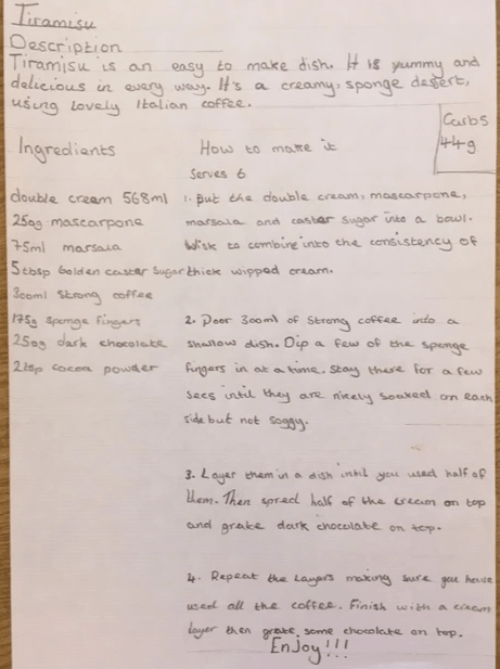 Tiramisu
Description
Tiramisu is an easy to make dish. It is yummy and
delicious in every way. It's a creamy, sponge desert,
using lovely Italian coffee.
Carbs
44g
Ingredients
double cream 568ml
250g mascarpone
75ml marsala
5tbsp Golden caster sugar
300ml strong coffee
175g sponge fingers
250g dark chocolate
2tsp cocoa powder
How to make it
Serves 6
1. Put the double cream, mascarpone,
marsala and caster sugar into a bowl.
Wisk to combine into the consistency of
thick wipped cream.
2. Poor 300ml of strong coffee into a
shallow dish. Dip a few of the sponge
fingers in at a time. Stay there for a few
secs intil they are nicely soaked on each
side but not soggy.
3. Layer them in a dish intil you used half of
them. Then spred half of the cream on top
and grate dark chocolate on top.
4. Repeat the layers making sure you have
used all the coffee. Finish with a cream
layer then grate some chocolate on top.
Enjoy!!!